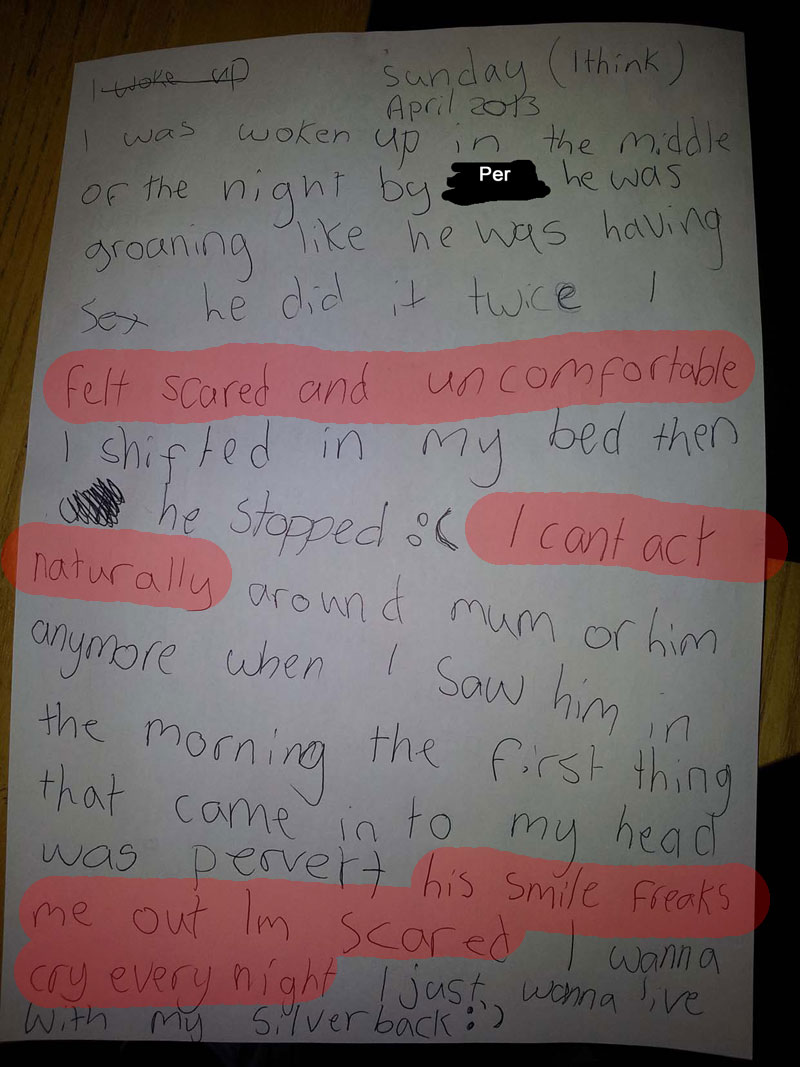 I woke up
Sunday (I think)
April 2013
I was woken up in the middle
of the night by Per he was
groaning like he was having
sex he did it twice I
felt scared and uncomfortable
I shifted in my bed then
he stopped :( I cant act
naturally around mum or him
anymore when I saw him in
the morning the first thing
that came in to my head
was pervert his smile freaks
me out Im scared I wanna
cry every night I just wanna live
with my silverback :)